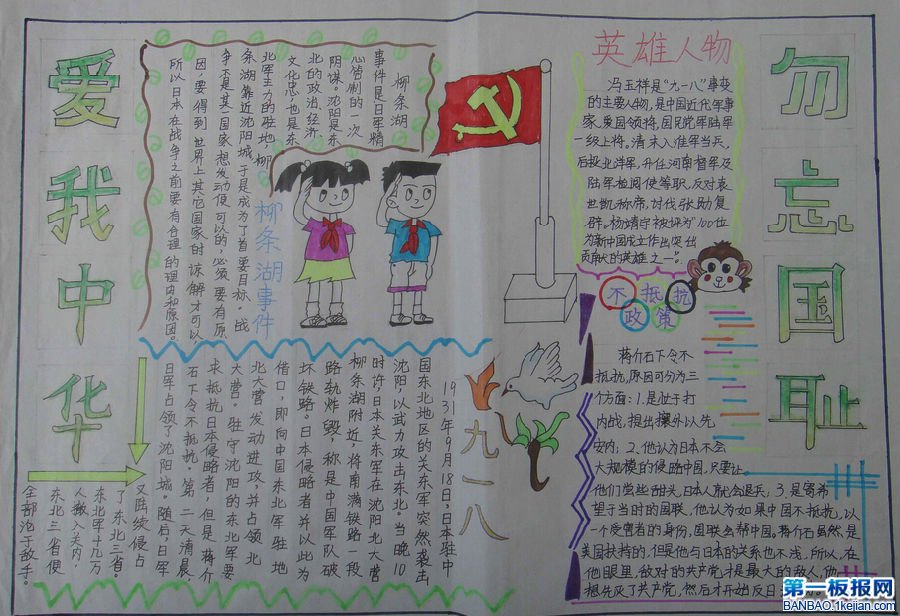 爱我中华
柳条湖
事件是日军精
心策制的一次
阴谋。沈阳是东
北的政治、经济、
文化中心,也是东
北军主力的驻地。柳
条湖靠近沈阳城,于是成为了首要目标。战
争不是某个国家想发动便可以的,必须要有原
因,要得到世界上其它国家的谅解才可以。
所以日本在战争之前要有合理的理由和原因。
柳条湖事件
英雄人物
冯玉祥是“九一八”事变
的主要人物,是中国近代军事
家、爱国领将,国民党军陆军
一级上将。清末入淮军当兵,
后投北洋军,升任河南督军及
陆军检阅使等职,反对袁
世凯称帝,讨伐张勋复
辟。杨靖宇被评为“100位
为新中国成立作出突出
贡献的英雄之一”。
勿忘国耻
九一八
1931年9月18日,日本驻中
国东北地区的关东军突然袭击
沈阳,以武力攻击东北。当晚10
时许,日本关东军在沈阳北大营
柳条湖附近,将南满铁路一段
路轨炸毁,称是中国军队破
坏铁路。日本侵略者并以此为
借口,即向中国东北军驻地
北大营发动进攻,并占领北
大营。驻守沈阳的东北军要
求抵抗日本侵略者,但是蒋介
石下令不抵抗。第二天清晨,
日军占领了沈阳城。随后,日军
又陆续侵占
了东北三省。
东北军十几万
人撤入关内,
东北三省便
全部沦于敌手。
不抵抗
政策
蒋介石下令不
抵抗,原因可分为三
个方面:1.是处于打
内战,提出攘外以先
安内;2.他认为日本不会
大规模的侵略中国,只要让
他们尝些甜头,日本人就会退兵;3.是寄希
望于当时的国联,他认为如果中国不抵抗,以
一个受害者的身份,国联会帮中国。蒋介石虽然是
美国扶持的,但是他与日本的关系也不浅,所以,在
他眼里,敌对的共产党才是最大的敌人,他
想先灭了共产党,然后才开始反日
第一板报网
BANBAO.1kejian.com